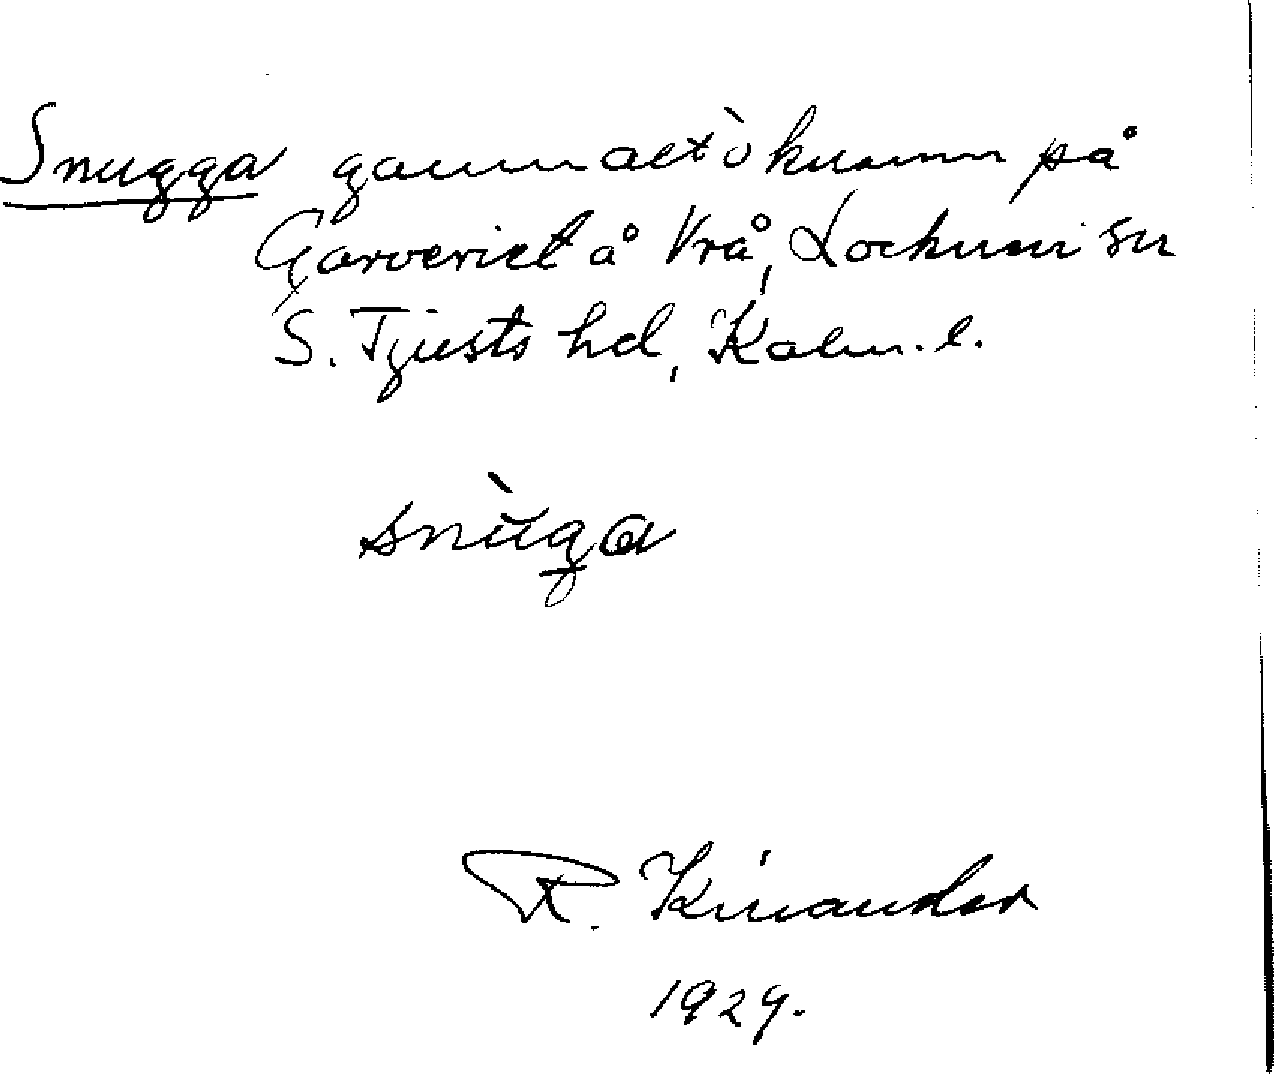 Snugga gammalt öknamn på
Garveriet å Vrå, Locknevi sn
S. Tjusts hd, Kalm. l.
snùga
R. Kinander
1929.